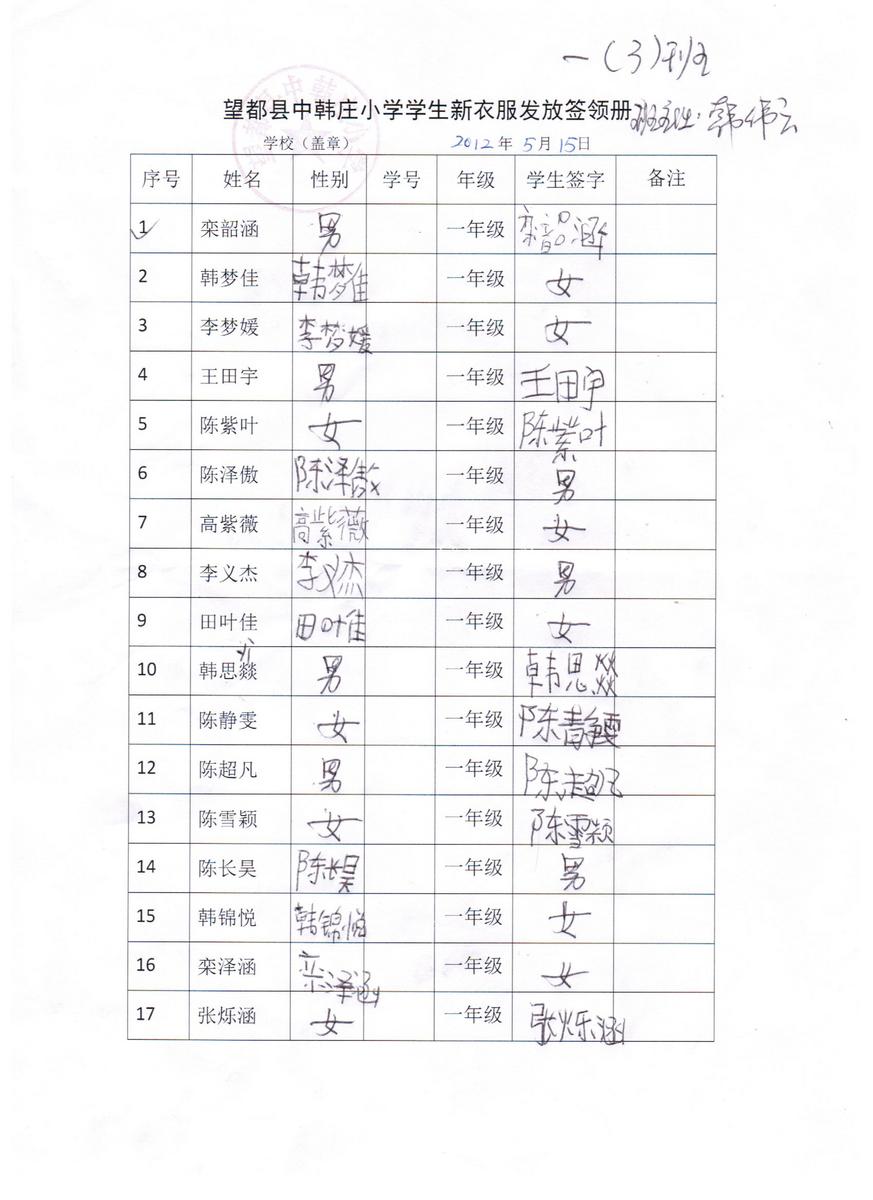 一(3)班
望都县中韩庄小学学生新衣服发放签领册 班主任:韩伟云
学校（盖章） 2012年 5月 15日
序号 姓名 性别 学号 年级 学生签字 备注
1 栾韶涵 男 一年级 栾韶涵
2 韩梦佳 韩梦佳 一年级 女
3 李梦媛 李梦媛 一年级 女
4 王田宇 男 一年级 王田宇
5 陈紫叶 女 一年级 陈紫叶
6 陈泽傲 陈泽傲 一年级 男
7 高紫薇 高紫薇 一年级 女
8 李义杰 李义杰 一年级 男
9 田叶佳 田叶佳 一年级 女
10 韩思燚 男 一年级 韩思燚
11 陈静雯 女 一年级 陈静雯
12 陈超凡 男 一年级 陈超凡
13 陈雪颖 女 一年级 陈雪颖
14 陈长昊 陈长昊 一年级 男
15 韩锦悦 韩锦悦 一年级 女
16 栾泽涵 栾泽涵 一年级 女
17 张烁涵 女 一年级 张烁涵